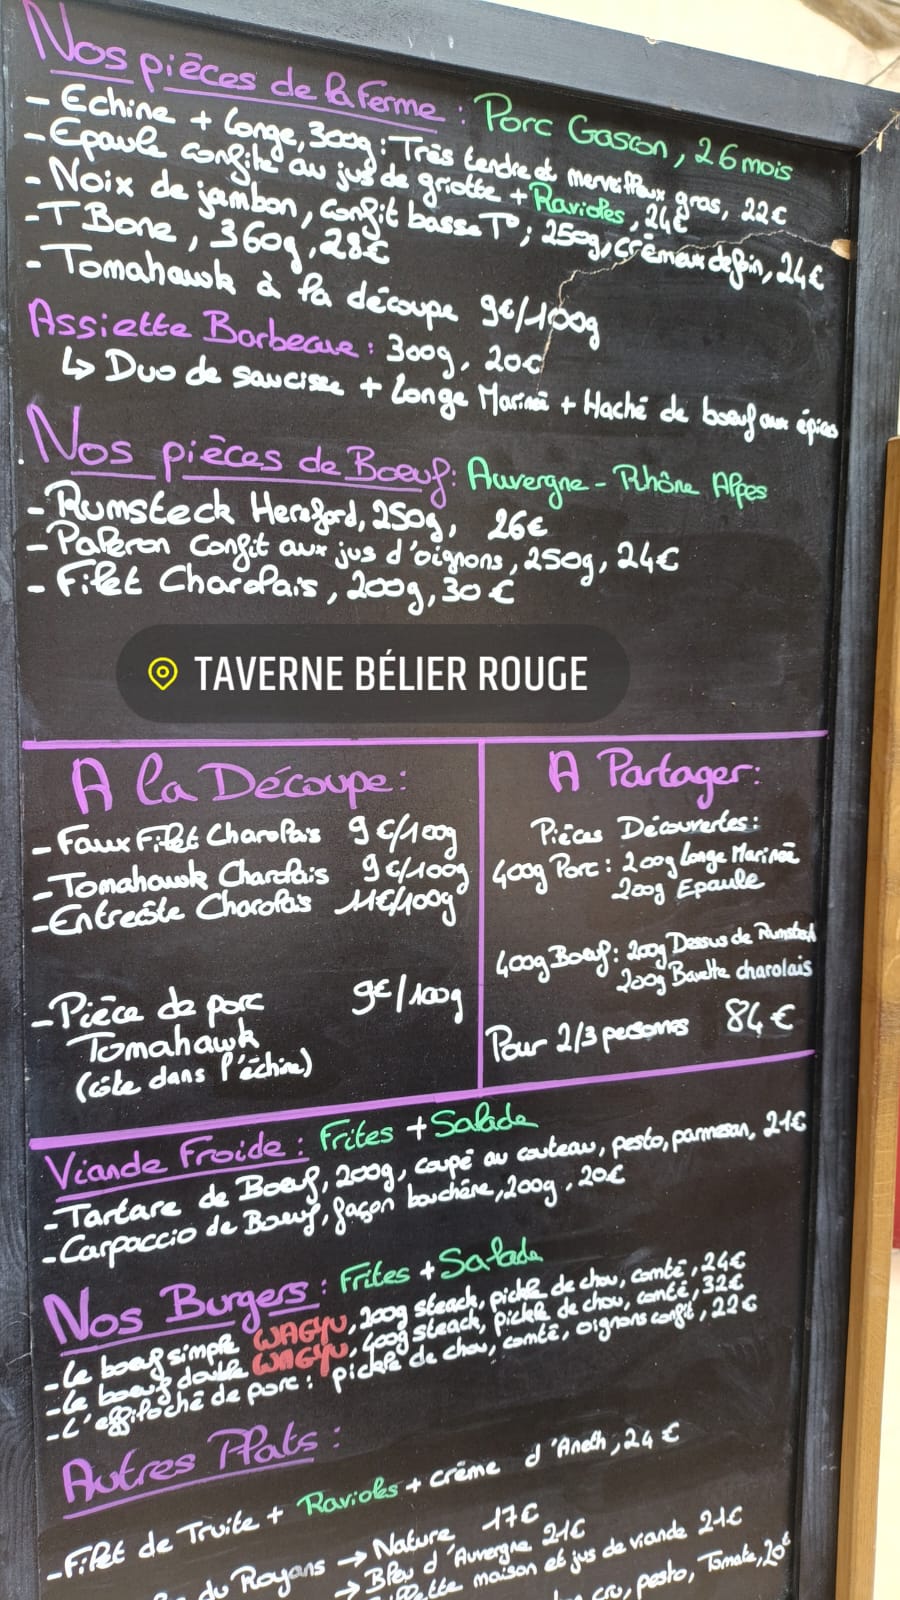 Nos pièces de la Ferme : Porc Gascon, 26 mois
- Echine + Longe, 300g : Très tendre et merveilleux gras, 22€
- Epaule confite au jus de griotte + Ravioles, 24€
- Noix de jambon, confit basse T°; 250g, crémeux de foin, 24€
- T Bone, 360g, 28€
- Tomahawk à la découpe 9€/100g
Assiette Barbecue : 300g, 20€
↳ Duo de saucisse + Longe Marinée + Haché de boeuf aux épices
Nos pièces de Boeuf : Auvergne - Rhône Alpes
- Rumsteck Hereford, 250g, 26€
- Paleron confit aux jus d'oignons, 250g, 24€
- Filet Charolais, 200g, 30€
TAVERNE BÉLIER ROUGE
A la Découpe :
- Faux Filet Charolais 9€/100g
- Tomahawk Charolais 9€/100g
- Entrecôte Charolais 11€/100g
- Pièce de porc 9€/100g
Tomahawk
(côte dans l'échine)
A Partager :
Pièces Découvertes :
400g Porc : 200g Longe Marinée
200g Epaule
400g Boeuf : 200g Dessus de Rumsteck
200g Bavette charolais
Pour 2/3 personnes 84€
Viande Froide : Frites + Salade
- Tartare de Boeuf, 200g, coupé au couteau, pesto, parmesan, 21€
- Carpaccio de Boeuf, façon bouchère, 200g, 20€
Nos Burgers : Frites + Salade
- Le boeuf simple WAGYU, 200g steack, pickle de chou, comté, 24€
- Le boeuf double WAGYU, 400g steack, pickle de chou, comté, 32€
- L'effiloché de porc : pickle de chou, comté, oignons confit, 22€
Autres Plats :
- Filet de Truite + Ravioles + crème d'Aneth, 24€
du Royans → Nature 17€
→ Bleu d'Auvergne 21€
maison et jus de viande 21€
cru, pesto, Tomate, 20€